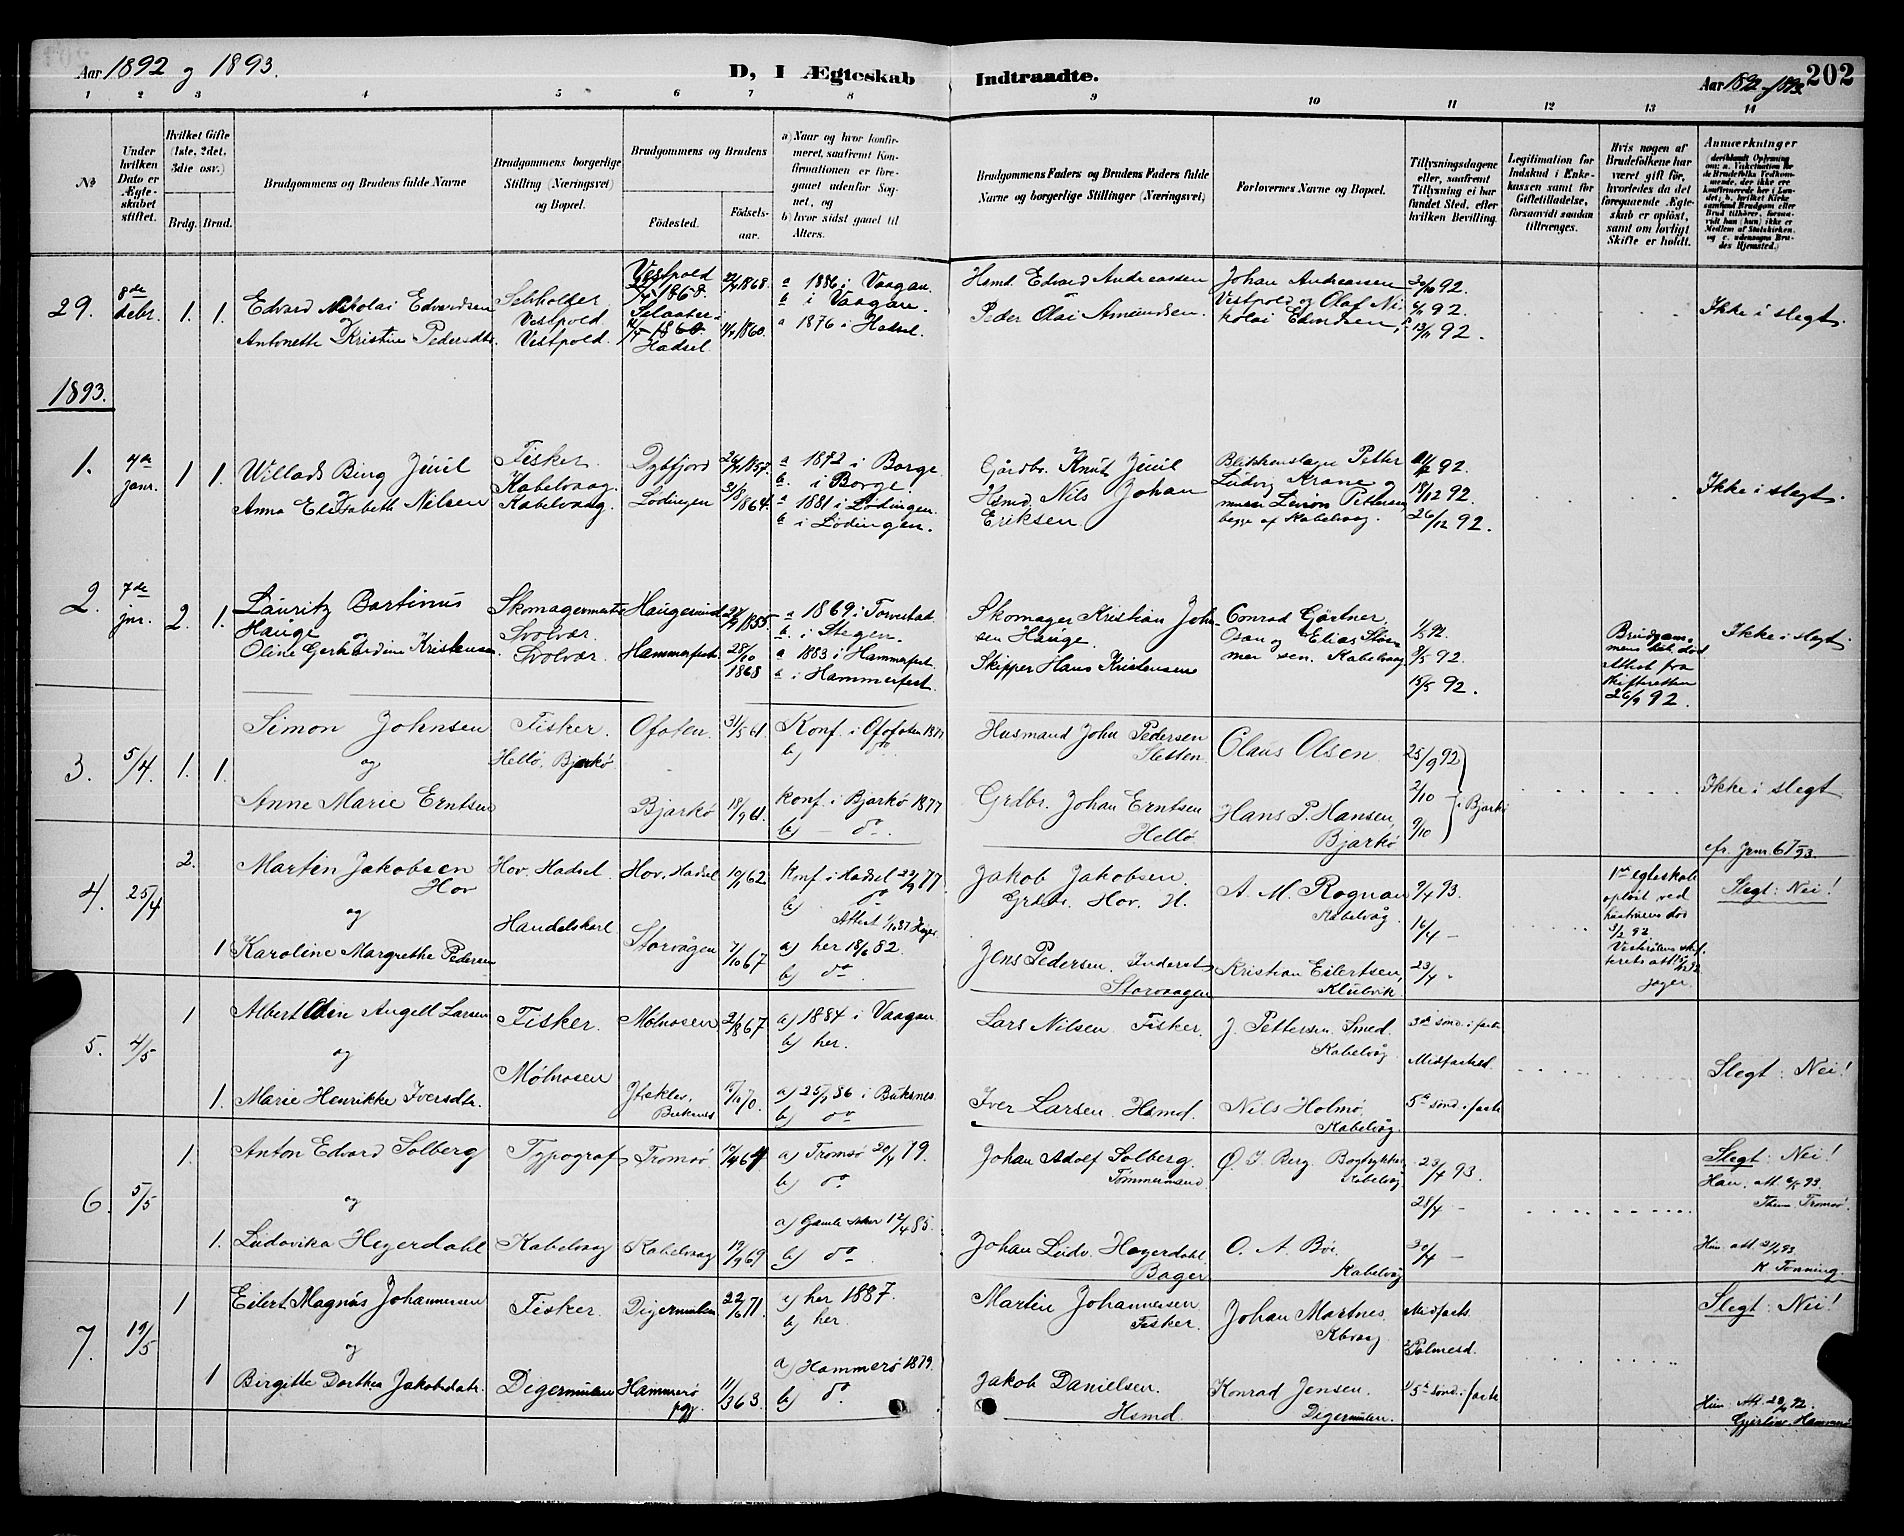 Aar 1892 og 1893.
D, I Ægteskab Indtraadte.
Aar 1892 og 1893.
202
1 2 3 4 5 6 7 8 9 10 11 12 13 14
No
Under hvilken Dato er Ægteskabet stiftet.
Hvilket Gifte (1ste, 2det, 3die osv.)
Brdg. Brud.
Brudgommens og Brudens fulde Navne
Brudgommens borgerlige Stilling (Næringsvei) og Bopæl.
Brudgommens og Brudens
Fødested. Fødselsaar.
a) Naar og hvor konfirmeret, saafremt Konfirmationen er foregaaet udenfor Sognet, og
b) hvor sidst gaaet til Alters.
Brudgommens Faders og Brudens Faders fulde Navne og borgerlige Stillinger (Næringsvei)
Forlovernes Navne og Bopæl.
Tillysningsdagene eller, saafremt Tillysning ei har fundet Sted, efter hvilken Bevilling.
Legitimation for Indskud i Enkekassen samt for Giftetilladelse, forsaavidt saadan tiltrænges.
Hvis nogen af Brudefolkene har været gift før, hvorledes da det foregaaende Ægteskab er opløst, samt om lovligt Skifte er holdt.
Anmærkninger
29. 8de debr. 1. 1.
Edvard Nikolai Edvardsen
og
Antonette Kristine Pedersdtr.
Selvholder
Vestpold
Vestpold.
Vestpold
1868.
1860.
Hadsel.
a 1886 i Vaagan.
b i Vaagan.
a 1876 i Hadsel.
Hsmd. Edvard Andreassen
Peder Olai Amundsen.
Johan Andreassen
Vestpold og Olaf Nikolai Edvardsen,
30/10 92.
6/11 92.
13/11 92.
Ikke i slegt.
1893.
1. 4de janr. 1 1.
Willads Bing Juul
og
Anna Elisabeth Nilsen
Fisker
Kabelvaag.
Kabelvaag.
Dybfjord
Lødingen
1857.
31/8 1864.
a 1872 i Borge
b. i Borge.
a 1881 i Lødingen.
b i Lødingen.
Gårdbr. Knut Juul
Hsmd. Nils Johan
Eriksen
Blikkenslager Petter
Ludvig Krane og
murer Simon Pettersen
begge af Kabelvaag.
11/12 92.
18/12 92.
26/12 92.
Ikke i slegt.
2. 7de jnr. 2. 1.
Lauritz Bartinus
Hauge
og
Oline Gerhardine Kristensen
Skomagermester
Svolvær.
Svolvær.
Haugesund
Hammerfest
1855.
28/10 1868
a 1869 i Torvestad
b. i Stegen.
a 1883 i Hammerfest.
b i Hammerfest.
Skomager Kristian Johnsen Hauge.
Skipper Hans Kristensen
Conrad Gärtner,
Osan og Elias Stormer sen. Kabelvaag
1/5 92.
8/5 92.
15/5 92.
Brudgommens
Attest fra
Skifteretten
26/9 92.
Ikke i slegt.
3. 5/4. 1. 1.
Simon Johnsen
og
Anne Marie Erntsen
Fisker.
Hellø, Bjarkø
Ofoten.
Bjarkø
31/5 61.
18/9 61.
Konf. i Ofoten 1877
b) do
Konf. i Bjarkø 1877
b) — do.
Husmand John Pedersen
Sletten.
Grdbr. Johan Erntsen
Hellø.
Claus Olsen.
Hans P. Hansen,
Bjarkø
25/9 92
2/10 — Bjarkø
9/10
Ikke i slegt
cfr. Jrnr. 67/93.
4. 25/4 2. 1
Martin Jakobsen
Hov
og
Karoline Margrethe Pedersen
Hov. Hadsel
Handelskarl
Hov. Hadsel
Storvågen
10/11 62
7/10 67
Konf. i Hadsel 77
b) do
a) her 18/6 82.
b) do
Jakob Jakobsen.
Grdbr. Hov. H.
Jens Pedersen. Inderst
Storvaagen
A. M. Rognan
Kabelvåg.
Kristian Eilertsen,
Klubvik
9/4 93.
16/4 —
23/4 "
1ste egteskab
opløst ved
hustruens død
3/2 92.
Slegt: Nei!
5. 4/5 1 1.
Albert Odin Angell Larsen
og
Marie Henrikke Iversdtr.
Fisker.
Mølnosen
Mølnosen
Buksnes
67
a) 1884 i Vaagan
b) her.
a) 25/7 86 i Buksnes.
b) do
Lars Nilsen. Fisker.
Iver Larsen. Hsmd.
J. Pettersen. Smed.
Kabelvåg.
Nils Holmø,
Kabelvåg.
3de sønd. i faste
Midfasted.
5te sønd. i faste
Slegt: Nei!
6. 5/5 1. 1.
Anton Edvard Solberg
og
Ludovika Heyerdahl
Typograf
Kabelvaag
Tromsø.
Kabelvaag
19/9 69
a) Tromsø 20/4 79.
b) do
a) Gamle Aker 12/4 85.
b) do
Johan Adolf Solberg.
Tømmermand.
Johan Ludv. Heyerdahl
Bager
Ø. J. Berg. Bogtrykker
Kabelvåg
O. A. Bøe.
Kabelvåg
23/4 93.
28/4 —
30/4 —
Slegt: Nei!
Tromsø.
K. Tønning.
7. 19/5 1 1
Eilert Magnus Johannesen
og
Birgitte Dorthea Jakobsdatr.
Fisker.
Digermulen
Digermulen
Hammerø
22/6 71.
11/3 63.
a) her 1887.
b) her.
a) Hammerø 1879.
b) do
Martin Johannesen
Fisker.
Jakob Danielsen.
Hsmd.
Johan Martnes.
Kbvaag.
Konrad Jensen.
Digermulen.
Midfaste.
Palmesd.
5te sønd. i faste
Slegt: Nei!